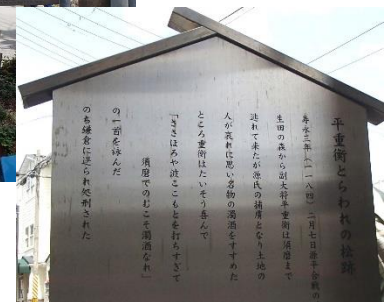 平重衡とらわれの松跡
寿永三年（一一八四）二月七日源平合戦の
生田の森から副大将平重衡は須磨まで
逃れて来たが源氏の捕虜となり土地の
人が哀れに思い名物の濁酒をすすめた
ところ重衡はたいそう喜んで
「ささほろや波ここもとを打ちすぎて
須磨でのむこそ濁酒なれ」
の一首を詠んだ
のち鎌倉に送られ処刑された